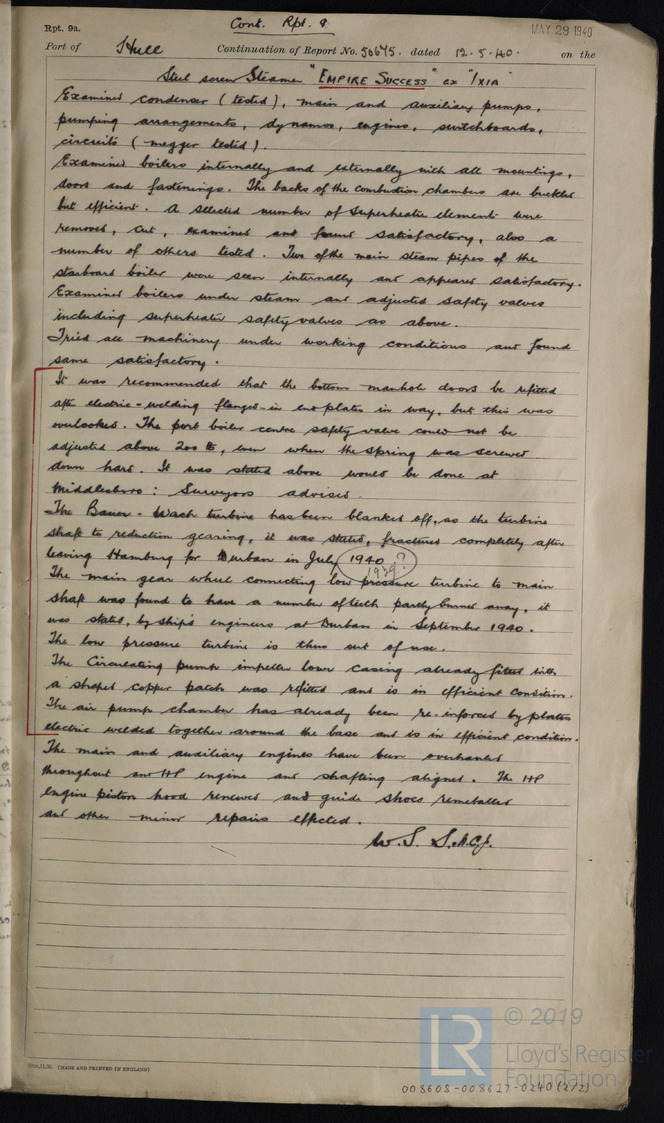 Cont. Rpt. 9
Rpt. 9a.
MAY 29 1940
Port of Hull Continuation of Report No. 50675. dated 12.5.40. on the
Steel screw Steamer "EMPIRE SUCCESS" ex "IXIA"
Examined condenser (tested), main and auxiliary pumps,
pumping arrangements, dynamos, engines, switchboards,
circuits (megger tested).
Examined boilers internally and externally with all mountings,
doors and fastenings. The backs of the combustion chambers are buckled
but efficient. A selected number of Superheater elements were
removed, cut, examined and found satisfactory, also a
number of others tested. Two of the main steam pipes of the
starboard boiler were seen internally and appeared satisfactory.
Examined boilers under steam and adjusted safety valves
including superheater safety valves as above.
Tried all machinery under working conditions and found
same satisfactory.
It was recommended that the bottom manhole doors be refitted
after electric-welding flanged-in end plates in way, but this was
overlooked. The port boiler centre safety valve could not be
adjusted above 200 lb, even when the spring was screwed
down hard. It was stated above would be done at
Middlesboro: Surveyors advised.
The Bauer-Wach turbine has been blanked off, as the turbine
shaft to reduction gearing, it was stated, fractured completely after
leaving Hamburg for Durban in July 1940
1939?
The main gear wheel connecting low pressure turbine to main
shaft was found to have a number of teeth partly burned away, it
was stated, by ship's engineers at Durban in September 1940.
The low pressure turbine is thus out of use.
The Circulating pump impeller lower casing already fitted with
a shaped copper patch was refitted and is in efficient condition.
The air pump chamber has already been re-inforced by plates
electric welded together around the base and is in efficient condition.
The main and auxiliary engines have been overhauled
throughout and HP engine and shafting aligned. The HP
engine piston hood renewed and guide shoes remetalled
and other minor repairs effected.
W. S. S.
(MADE AND PRINTED IN ENGLAND)
LR
© 2019
Lloyd's Register
Foundation
008608-008617-0240 (2/2)